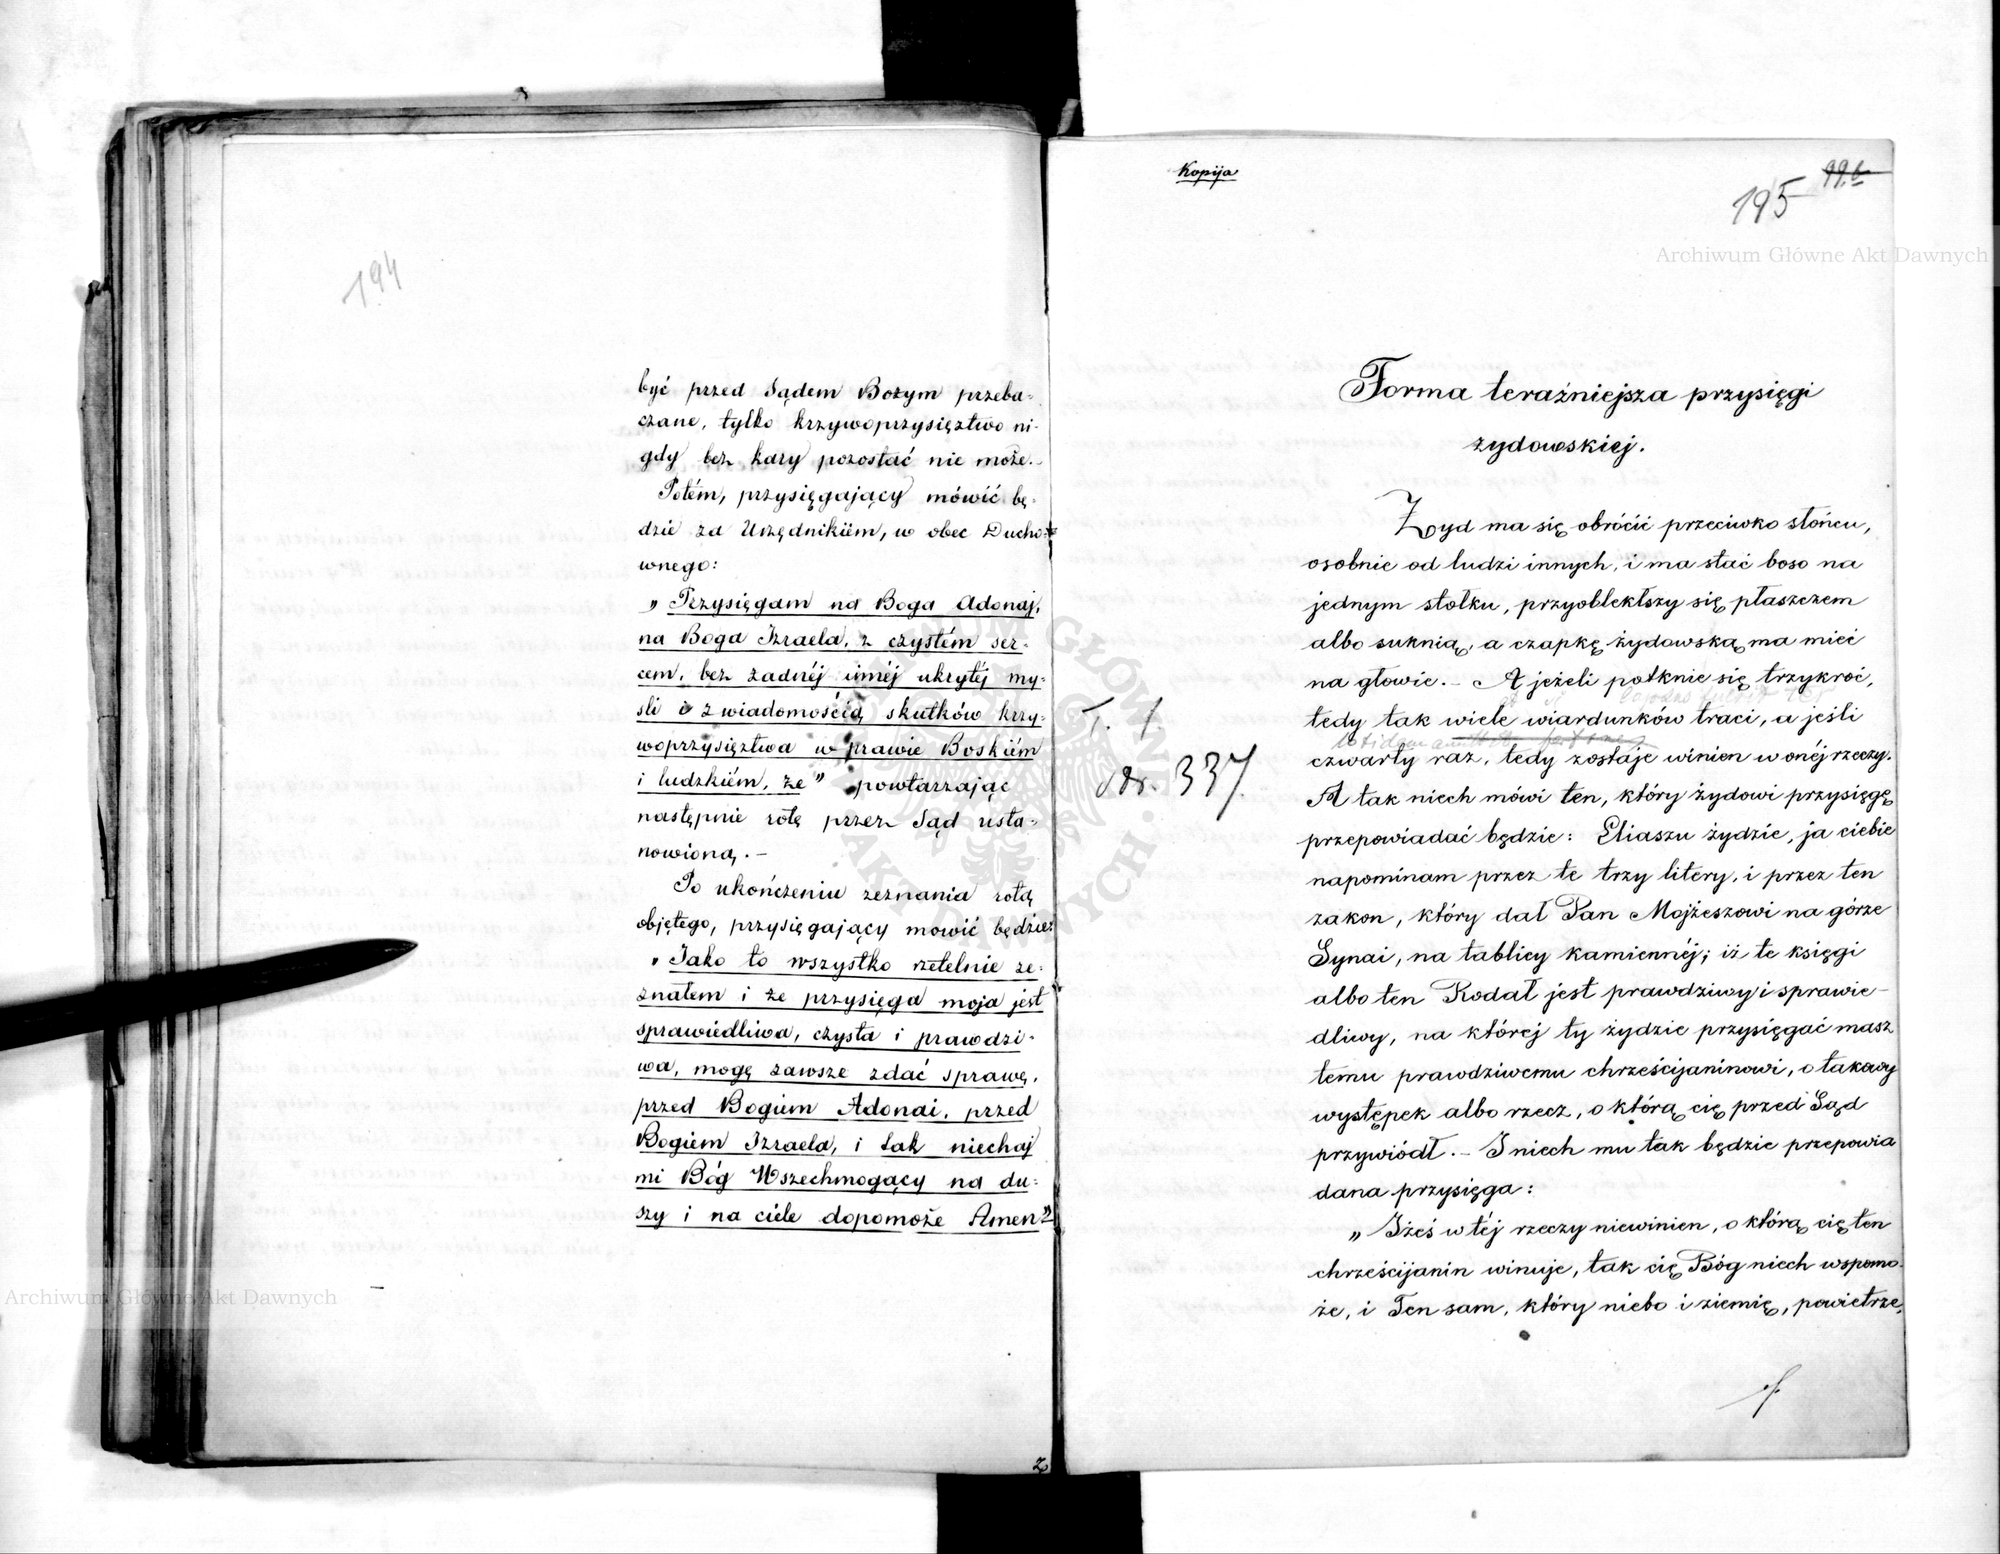 194
być przed Sądem Bożym przeba-
czane, tylko krzywoprzysięztwo ni-
gdy bez kary pozostać nie może.-
Potém, przysięgający mówić bę-
dzie za Urzędnikiem, w obec Ducho-
wnego:
„Przysięgam na Boga Adonaj,
na Boga Izraela, z czystém ser-
cem, bez żadnéj innéj ukrytéj my-
śli i z wiadomością skutków krzy-
woprzysięztwa w prawie Boskiém
i ludzkiém, że" powtarzając
następnie rotę przez Sąd usta-
nowioną.-
Po ukończeniu zeznania rotą
objętego, przysięgający mówić będzie:
„Jako to wszystko rzetelnie ze-
znałem i że przysięga moja jest
sprawiedliwa, czysta i prawdzi-
wa, mogę zawsze zdać sprawę,
przed Bogiem Adonai, przed
Bogiem Izraela, i tak niechaj
mi Bóg Wszechmogący na du-
szy i na ciele dopomoże Amen"
Kopija
195 99.6
Forma teraźniejsza przysięgi
żydowskiej.
Żyd ma się obrócić przeciwko słońcu,
osobnie od ludzi innych, i ma stać boso na
jednym stołku, przyoblekłszy się płaszczem
albo suknią, a czapkę żydowską ma mieć
na głowie.- A jeżeli potknie się trzykroć,
tedy tak wiele wiardunków traci, a jeśli
czwarty raz, tedy zostaje winien w onéj rzeczy.
A tak niech mówi ten, który żydowi przysięgę
przepowiadać będzie: Eliaszu żydzie, ja ciebie
napominam przez te trzy litery, i przez ten
zakon, który dał Pan Mojżeszowi na górze
Synai, na tablicy kamiennéj; iż te księgi
albo ten Rodał jest prawdziwy i sprawie-
dliwy, na której ty żydzie przysięgać masz
temu prawdziwemu chrześcijaninowi, o takowy
występek albo rzecz, o którą cię przed Sąd
przywiódł.- I niech mu tak będzie przepowia
dana przysięga:
„Iżeś w téj rzeczy niewinien, o którą cię ten
chrześcijanin winuje, tak cię Bóg niech wspomo-
że, i Ten sam, który niebo i ziemię, powietrze,
T. I
Nr. 337.
Archiwum Główne Akt Dawnych
Archiwum Główne Akt Dawnych
ARCHIWUM GŁÓWNE AKT DAWNYCH